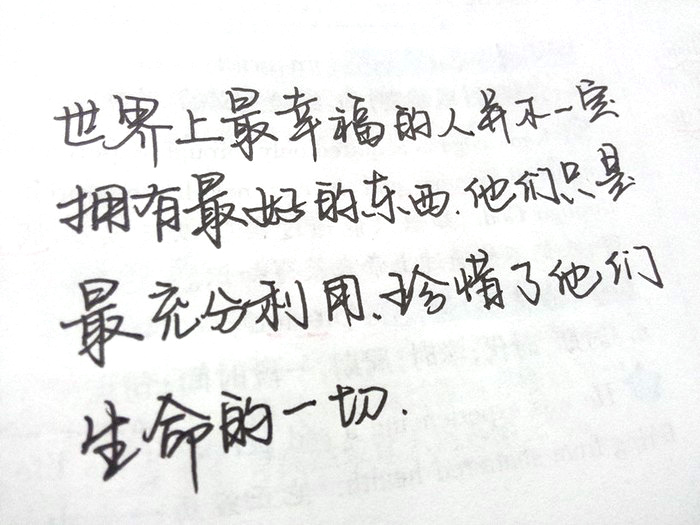 世界上最幸福的人并不一定
拥有最好的东西.他们只是
最充分利用、珍惜了他们
生命的一切.